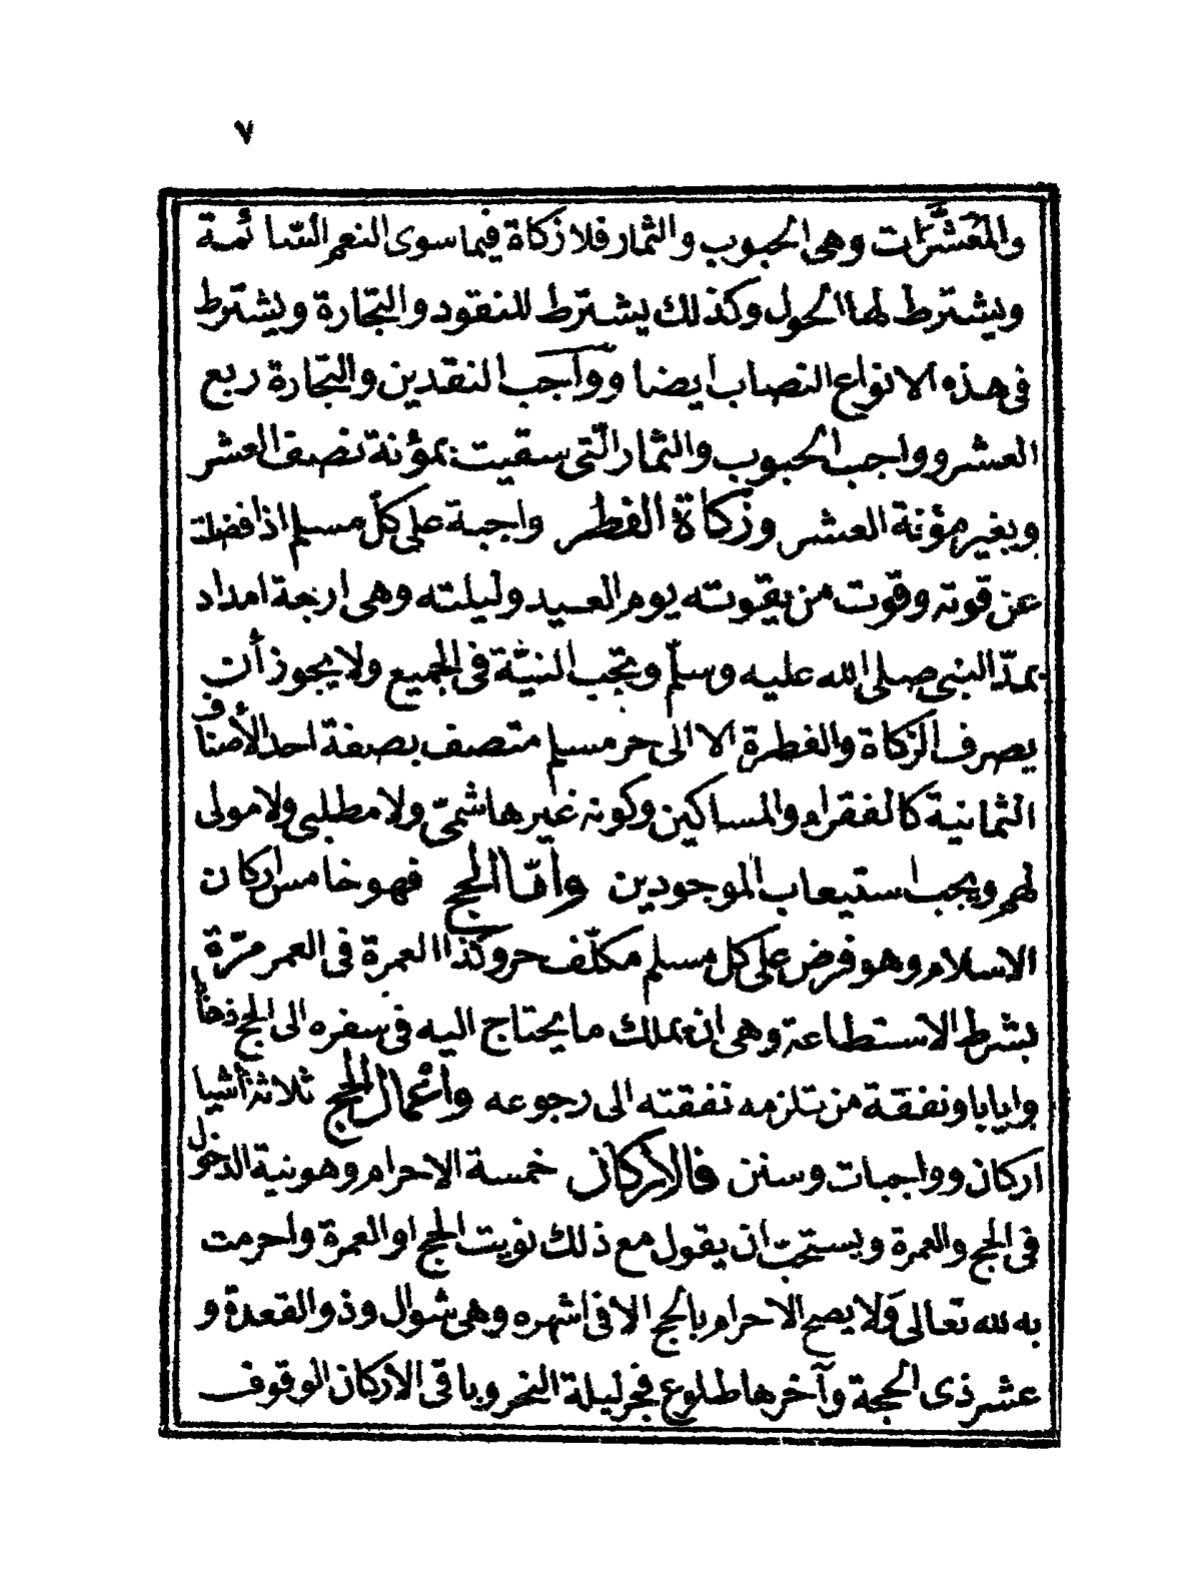 ٧
والمُعَشَّرَات وهى الحبوب والثمار فلا زكاة فيما سوى النعم السّائمة
ويشترط لها الحول وكذلك يشترط للنقود والتجارة ويشترط
فى هذه الانواع النصاب ايضا وواجب النقدين والتجارة ربع
العشر وواجب الحبوب والثمار الّتى سقيت بمؤنة نصف العشر
وبغير مؤنة العشر وزكاة الفطر واجبة على كلّ مسلم اذا فضلت
عن قوته وقوت من يقوته يوم العيد وليلته وهى اربعة امداد
بمدّ النبى صلى الله عليه وسلّم وتجب النيّة فى الجميع ولا يجوز أن
يصرف الزكاة والفطرة الا الى حر مسلم متصف بصفة احد الأصناف
الثمانية كالفقراء والمساكين وكونه غير هاشمىّ ولا مطلبى ولا مولى
لهم ويجب استيعاب الموجودين وامّا الحج فهو خامس اركان
الاسلام وهو فرض على كل مسلم مكلّف حر وكذا العمرة فى العمر مرّة
بشرط الاستطاعة وهى ان يملك ما يحتاج اليه فى سفره الى الحج ذهابا
وايابا ونفقة من تلزمه نفقته الى رجوعه وأعمال الحج ثلاثة أشيا
اركان وواجبات وسنن فالأركان خمسة الاحرام وهو نية الدخول
فى الحج والعمرة ويستحبّ ان يقول مع ذلك نويت الحج او العمرة واحرمت
به لله تعالى ولا يصح الاحرام بالحج الا فى اشهره وهى شوال وذو القعدة و
عشر ذى الحجة وآخرها طلوع فجر ليلة النحر وباقى الأركان الوقوف